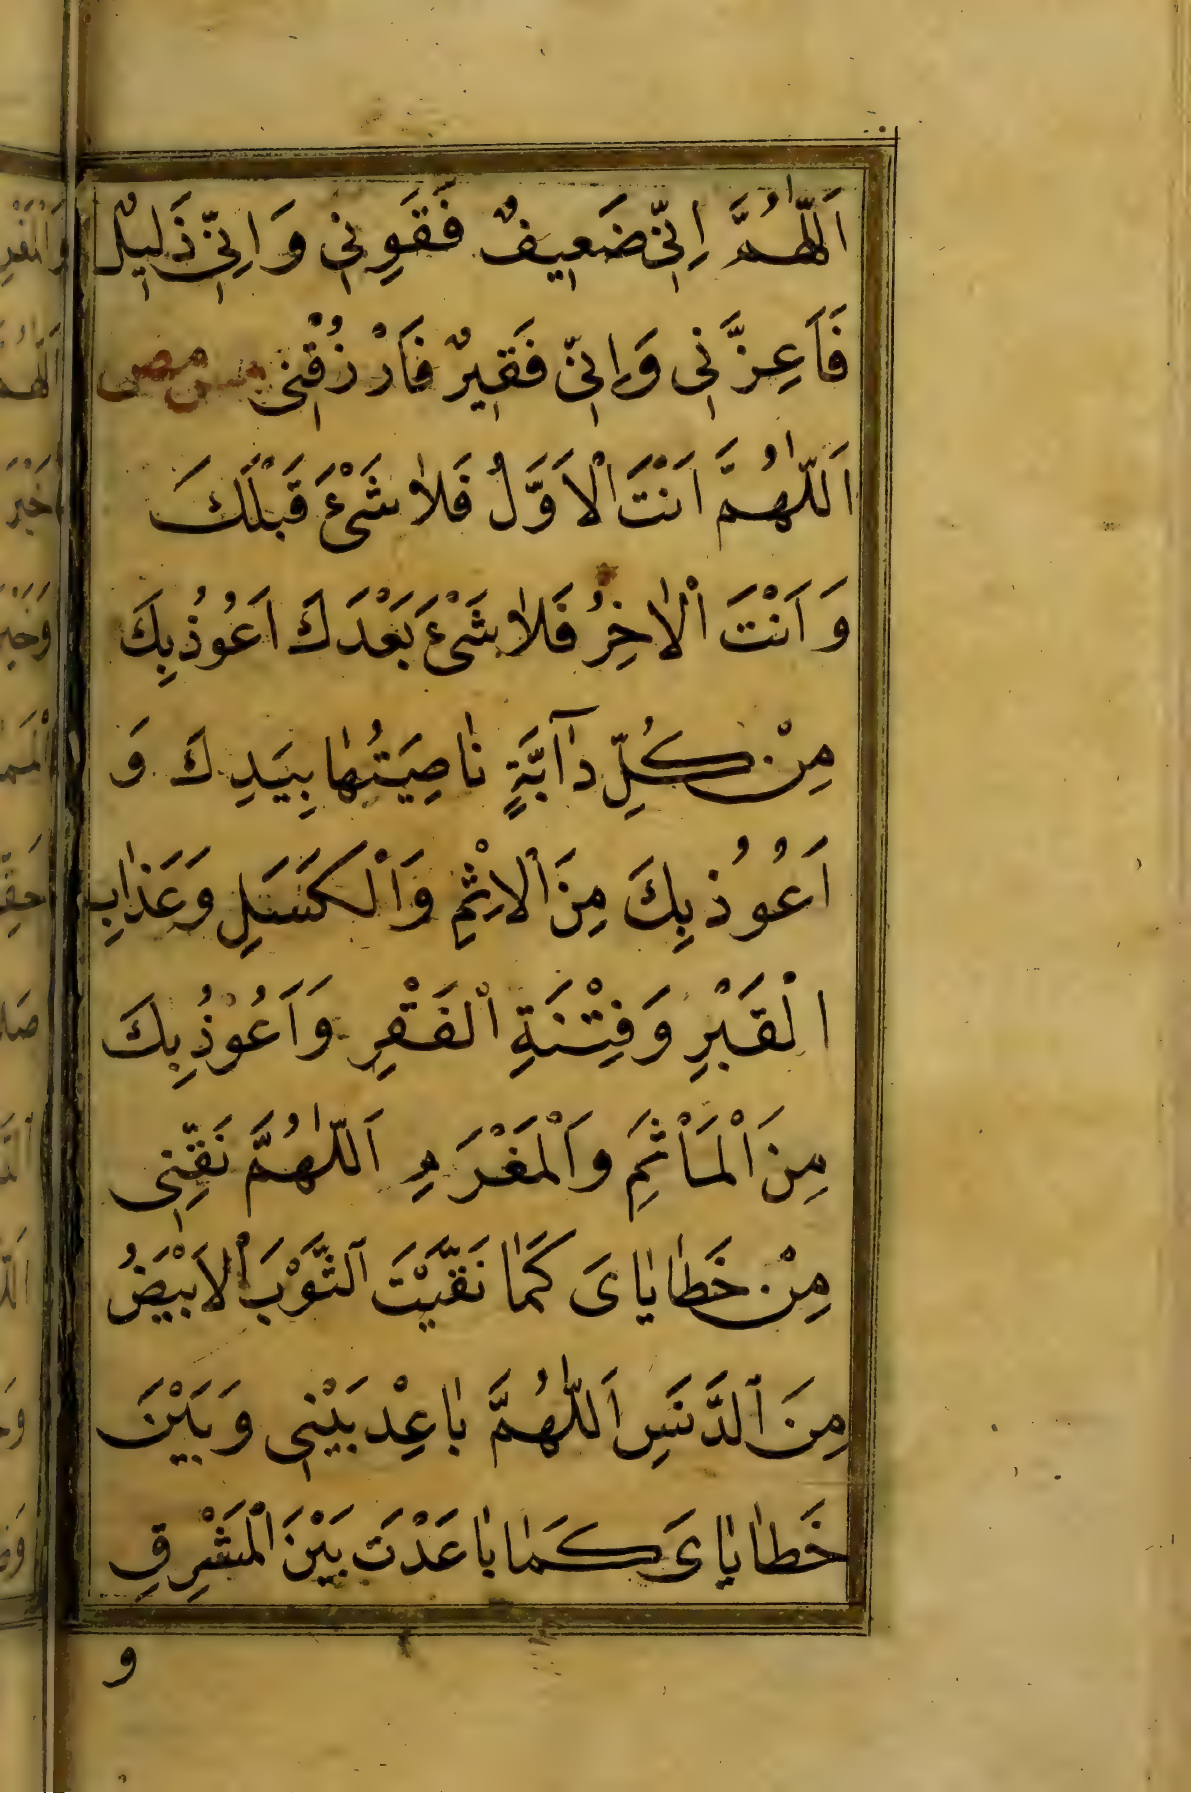 اَللّٰهُمَّ اِنّٖي ضَعٖيفٌ فَقَوِّنٖي وَ اِنّٖي ذَلٖيلٌ
فَاَعِزَّنٖي وَاِنّٖي فَقٖيرٌ فَارْزُقْنٖي مس مص
اَللّٰهُمَّ اَنْتَ الْاَوَّلُ فَلَا شَىْءَ قَبْلَكَ
وَ اَنْتَ الْاٰخِرُ فَلَا شَىْءَ بَعْدَكَ اَعُوذُ بِكَ
مِنْ كُلِّ دٰٓابَّةٍ نٰاصِيَتُهٰا بِيَدِكَ وَ
اَعُوذُ بِكَ مِنَ الْاِثْمِ وَالْكَسَلِ وَعَذٰابِ
الْقَبْرِ وَفِتْنَةِ الْفَقْرِ وَاَعُوْذُ بِكَ
مِنَ الْمَأْثَمِ وَالْمَغْرَمِ اَللّٰهُمَّ نَقِّنٖى
مِنْ خَطٰايٰاىَ كَمٰا نَقَّيْتَ الثَّوْبَ الْاَبْيَضَ
مِنَ الدَّنَسِ اَللّٰهُمَّ بٰاعِدْ بَيْنٖى وَبَيْنَ
خَطٰايٰاىَ كَمٰا بٰاعَدْتَ بَيْنَ الْمَشْرِقِ
و